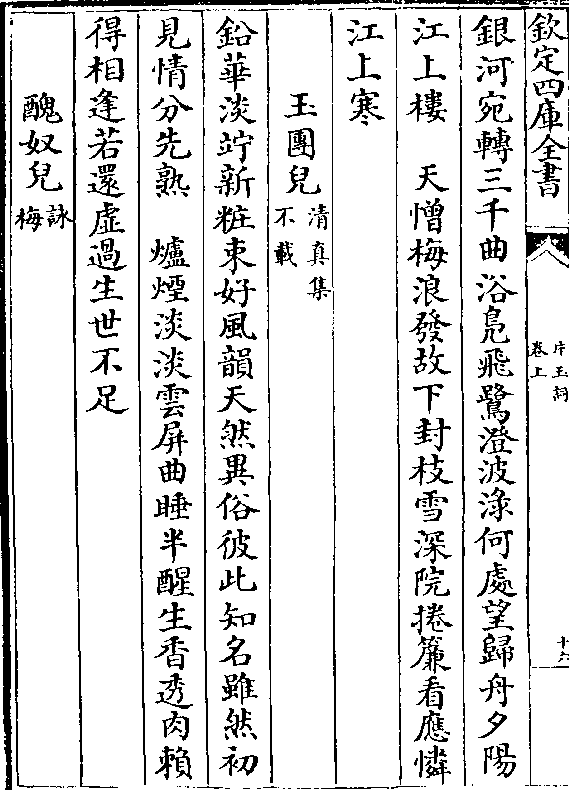 欽定四庫全書
片玉詞
卷上
十六
銀河宛轉三千曲浴鳧飛鷺澄波淥何處望歸舟夕陽
江上樓　天憎梅浪發故下封枝雪深院捲簾看應憐
江上寒
玉團兒清真集
不載
鉛華淡竚新粧束好風韻天然異俗彼此知名雖然初
見情分先熟　爐煙淡淡雲屏曲睡半醒生香透肉賴
得相逢若還虛過生世不足
醜奴兒詠
梅